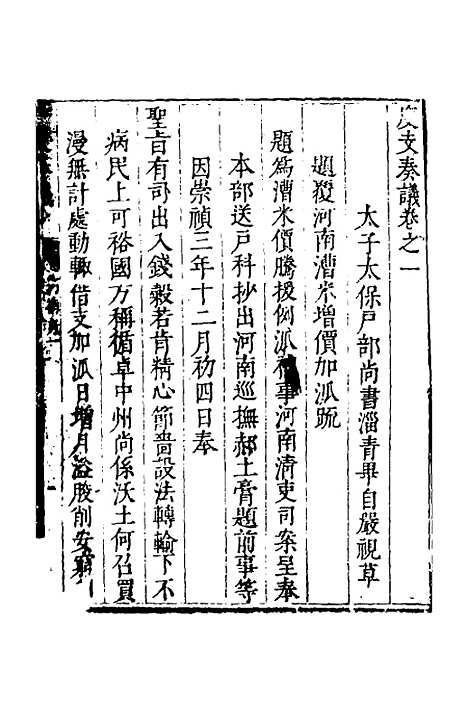 度支奏議卷之一
太子太保戶部尚書淄青畢自嚴視草
題覆河南漕米增價加派疏
題爲漕米價騰援例派事河南清吏司案呈奉
本部送戶科抄出河南巡撫郝土膏題前事等
因崇禎三年十二月初四日奉
聖旨有司出入錢穀若肯精心節嗇設法轉輸下不
病民上可裕國方稱循卓中州尚係沃土何召買
漫無計處動輒借支加派日增月溢朘削安窮